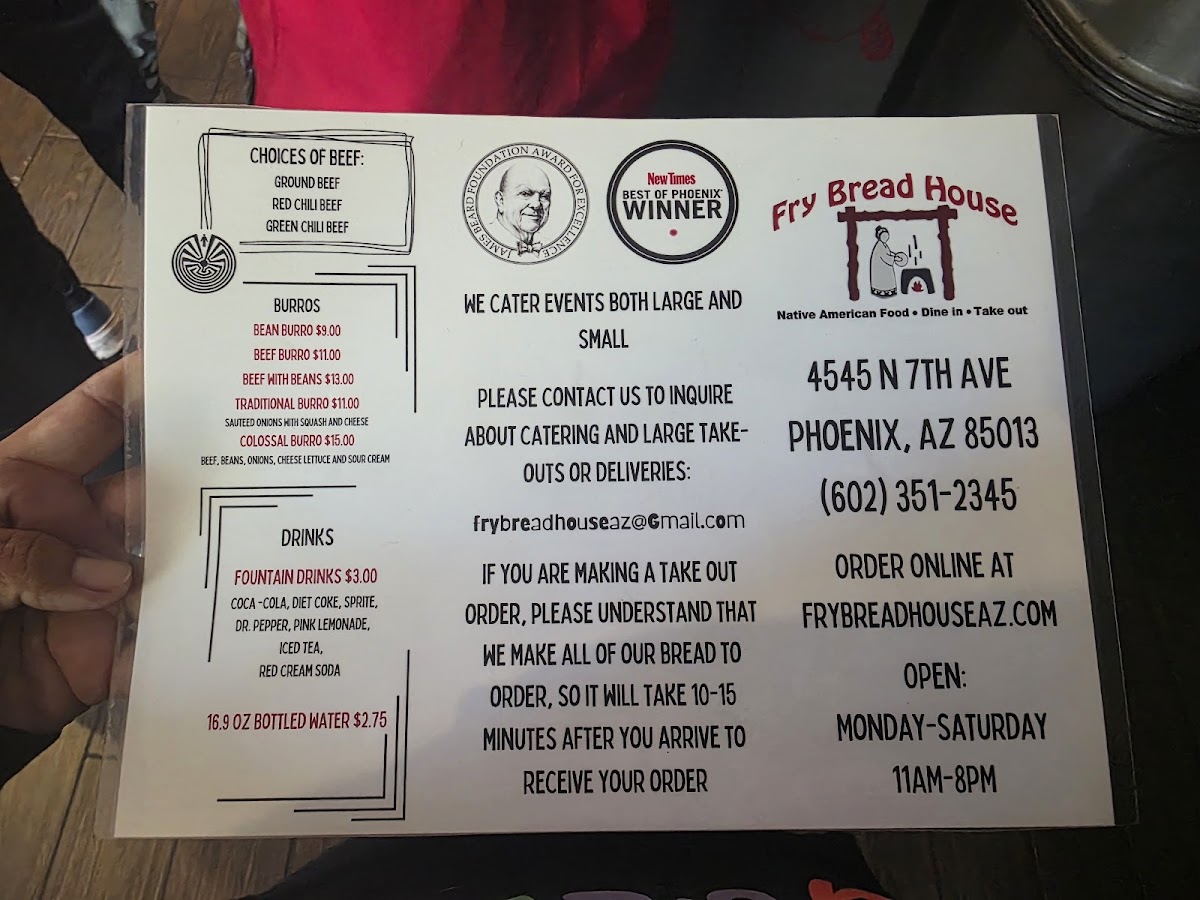 CHOICES OF BEEF:
GROUND BEEF
RED CHILI BEEF
GREEN CHILI BEEF
BURROS
BEAN BURRO $9.00
BEEF BURRO $11.00
BEEF WITH BEANS $13.00
TRADITIONAL BURRO $11.00
SAUTEED ONIONS WITH SQUASH AND CHEESE
COLOSSAL BURRO $15.00
BEEF, BEANS, ONIONS, CHEESE LETTUCE AND SOUR CREAM
DRINKS
FOUNTAIN DRINKS $3.00
COCA -COLA, DIET COKE, SPRITE,
DR. PEPPER, PINK LEMONADE,
ICED TEA,
RED CREAM SODA
16.9 OZ BOTTLED WATER $2.75
JAMES BEARD FOUNDATION AWARD FOR EXCELLENCE
New Times
BEST OF PHOENIX
WINNER
WE CATER EVENTS BOTH LARGE AND
SMALL
PLEASE CONTACT US TO INQUIRE
ABOUT CATERING AND LARGE TAKE-
OUTS OR DELIVERIES:
frybreadhouseaz@Gmail.com
IF YOU ARE MAKING A TAKE OUT
ORDER, PLEASE UNDERSTAND THAT
WE MAKE ALL OF OUR BREAD TO
ORDER, SO IT WILL TAKE 10-15
MINUTES AFTER YOU ARRIVE TO
RECEIVE YOUR ORDER
Fry Bread House
Native American Food • Dine in • Take out
4545 N 7TH AVE
PHOENIX, AZ 85013
(602) 351-2345
ORDER ONLINE AT
FRYBREADHOUSEAZ.COM
OPEN:
MONDAY-SATURDAY
11AM-8PM